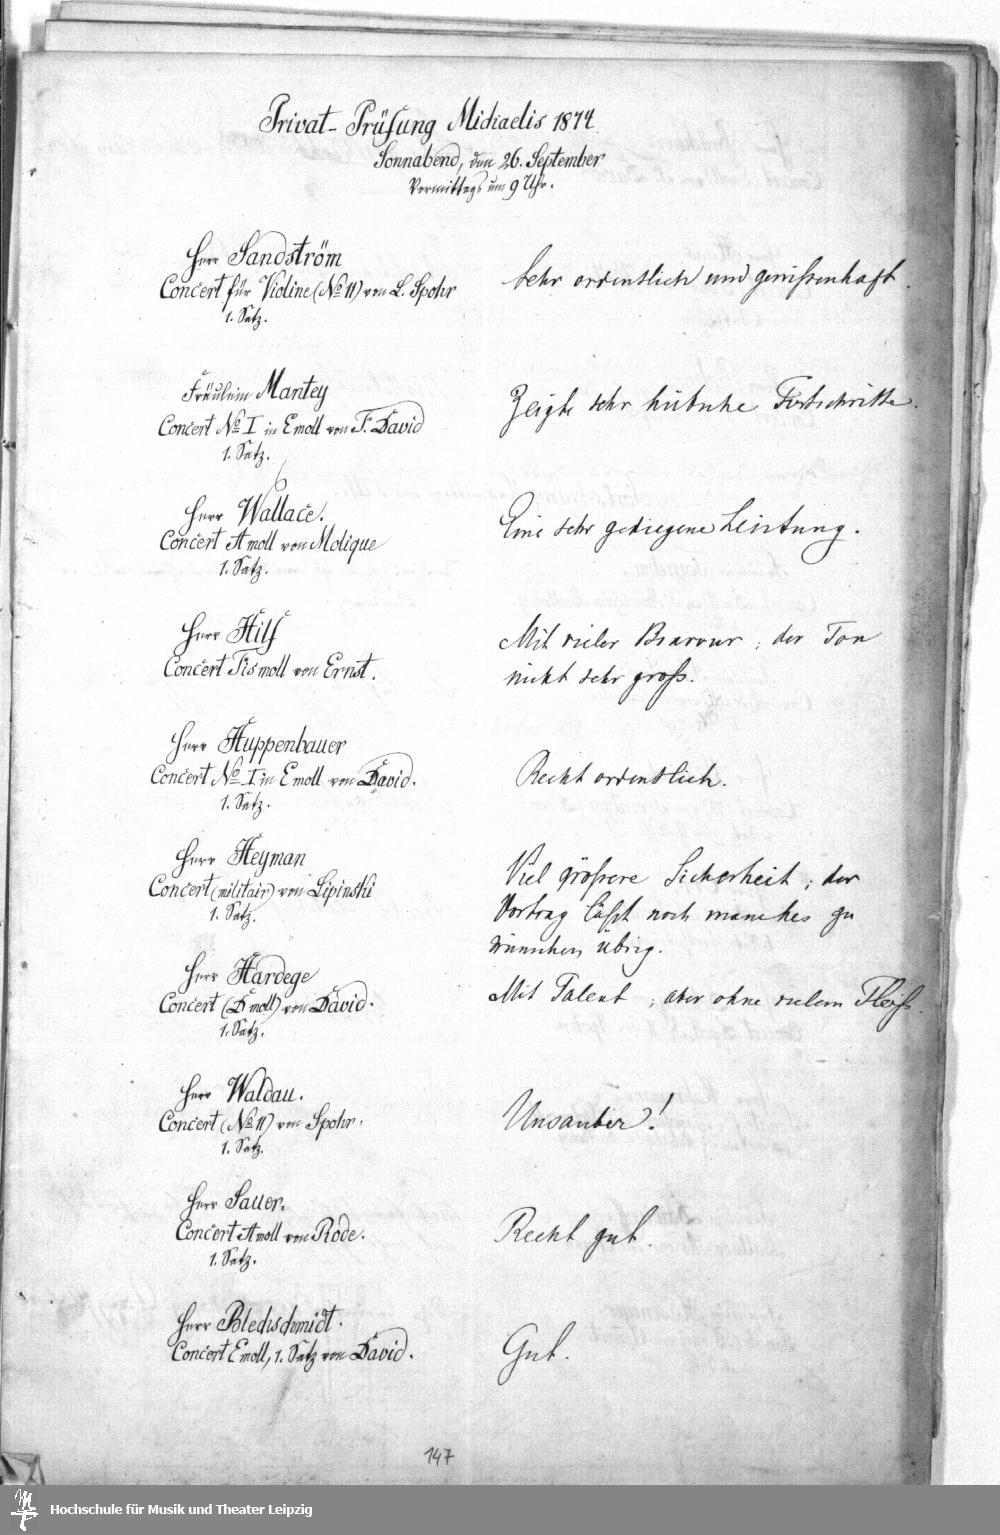 Privat-Prüfung Michaelis 1874.
Sonnabend, den 26. September
Vormittags um 9 Uhr.
Herr Sandström
Concert für Violine (No 11) von L. Spohr
1. Satz.
Sehr ordentlich und gewissenhaft.
Fräulein Mantey
Concert No I in Emoll von F. David
1. Satz.
Zeigte sehr hübsche Fortschritte.
Herr Wallace.
Concert Amoll von Molique
1. Satz.
Eine sehr gediegene Leistung.
Herr Hilf
Concert Fismoll von Ernst.
Mit vieler Bravour; der Ton
nicht sehr groß.
Herr Huppenbauer
Concert No I in Emoll von David.
1. Satz.
Recht ordentlich.
Herr Heyman
Concert (militair) von Lipinski
1. Satz.
Viel größere Sicherheit; der
Vortrag läßt noch manches zu
wünschen übrig.
Herr Hardege
Concert (Dmoll) von David.
1. Satz.
Mit Talent, aber ohne vielem Fleiß.
Herr Waldau.
Concert (No 11) von Spohr.
1. Satz.
Unsauber!
Herr Sauer.
Concert Amoll von Rode.
1. Satz.
Recht gut.
Herr Blechschmidt.
Concert Emoll, 1. Satz von David.
Gut.
147
Hochschule für Musik und Theater Leipzig